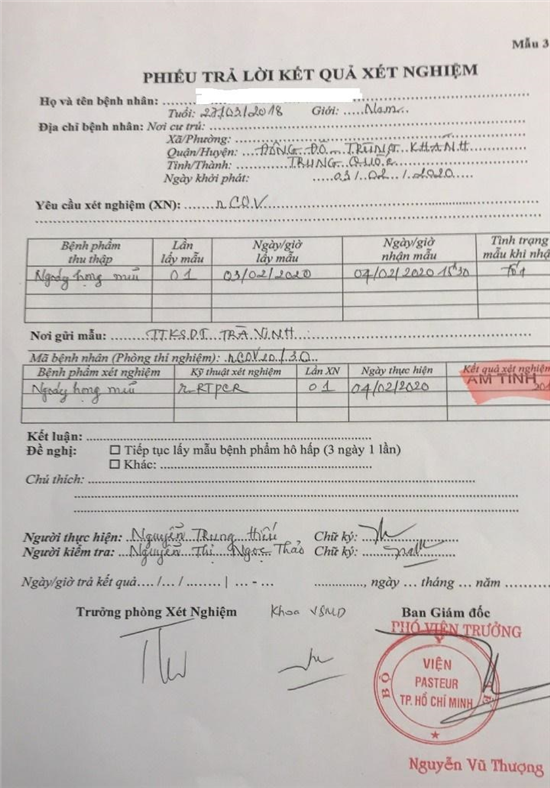 Mẫu 3
PHIẾU TRẢ LỜI KẾT QUẢ XÉT NGHIỆM
Họ và tên bệnh nhân:
Tuổi: 27/03/2018 Giới: Nam
Địa chỉ bệnh nhân: Nơi cư trú:
Xã/Phường:
Quận/Huyện: ĐÔNG ĐÔ - TRÙNG KHÁNH
Tỉnh/Thành: TRUNG QUỐC
Ngày khởi phát: 03/02/2020
Yêu cầu xét nghiệm (XN): nCOV
Bệnh phẩm thu thập Lần lấy mẫu Ngày/giờ lấy mẫu Ngày/giờ nhận mẫu Tình trạng mẫu khi nhậ
Ngoáy họng mũi 01 03/02/2020 04/02/2020 15h30 Tốt
Nơi gửi mẫu: TTKSDT TRÀ VINH
Mã bệnh nhân (Phòng thí nghiệm): nCOV20/30
Bệnh phẩm xét nghiệm Kỹ thuật xét nghiệm Lần XN Ngày thực hiện Kết quả xét nghiệm
Ngoáy họng mũi rRTPCR 01 04/02/2020 ÂM TÍNH
Kết luận:
Đề nghị: ☐ Tiếp tục lấy mẫu bệnh phẩm hô hấp (3 ngày 1 lần)
☐ Khác:
Chú thích:
Người thực hiện: Nguyễn Trung Hiếu Chữ ký:
Người kiểm tra: Nguyễn Thị Ngọc Thảo Chữ ký:
Ngày/giờ trả kết quả..../..../........ | ... - ... ............, ngày ... tháng ... năm ..........
Trưởng phòng Xét Nghiệm Khoa VSMD Ban Giám đốc
PHÓ VIỆN TRƯỞNG
BỘ Y TẾ
VIỆN
PASTEUR
TP. HỒ CHÍ MINH
Nguyễn Vũ Thượng